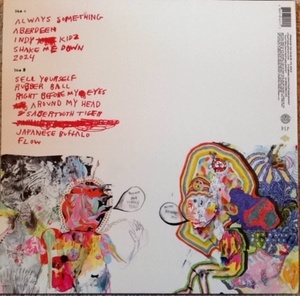 Side A
ALWAYS SOMETHING
ABERDEEN
INDY KIDZ
SHAKE ME DOWN
2024
Side B
SELL YOURSELF
RUBBER BALL
RIGHT BEFORE MY EYES
AROUND MY HEAD
SABERTOOTH TIGER
JAPANESE BUFFALO
FLOW